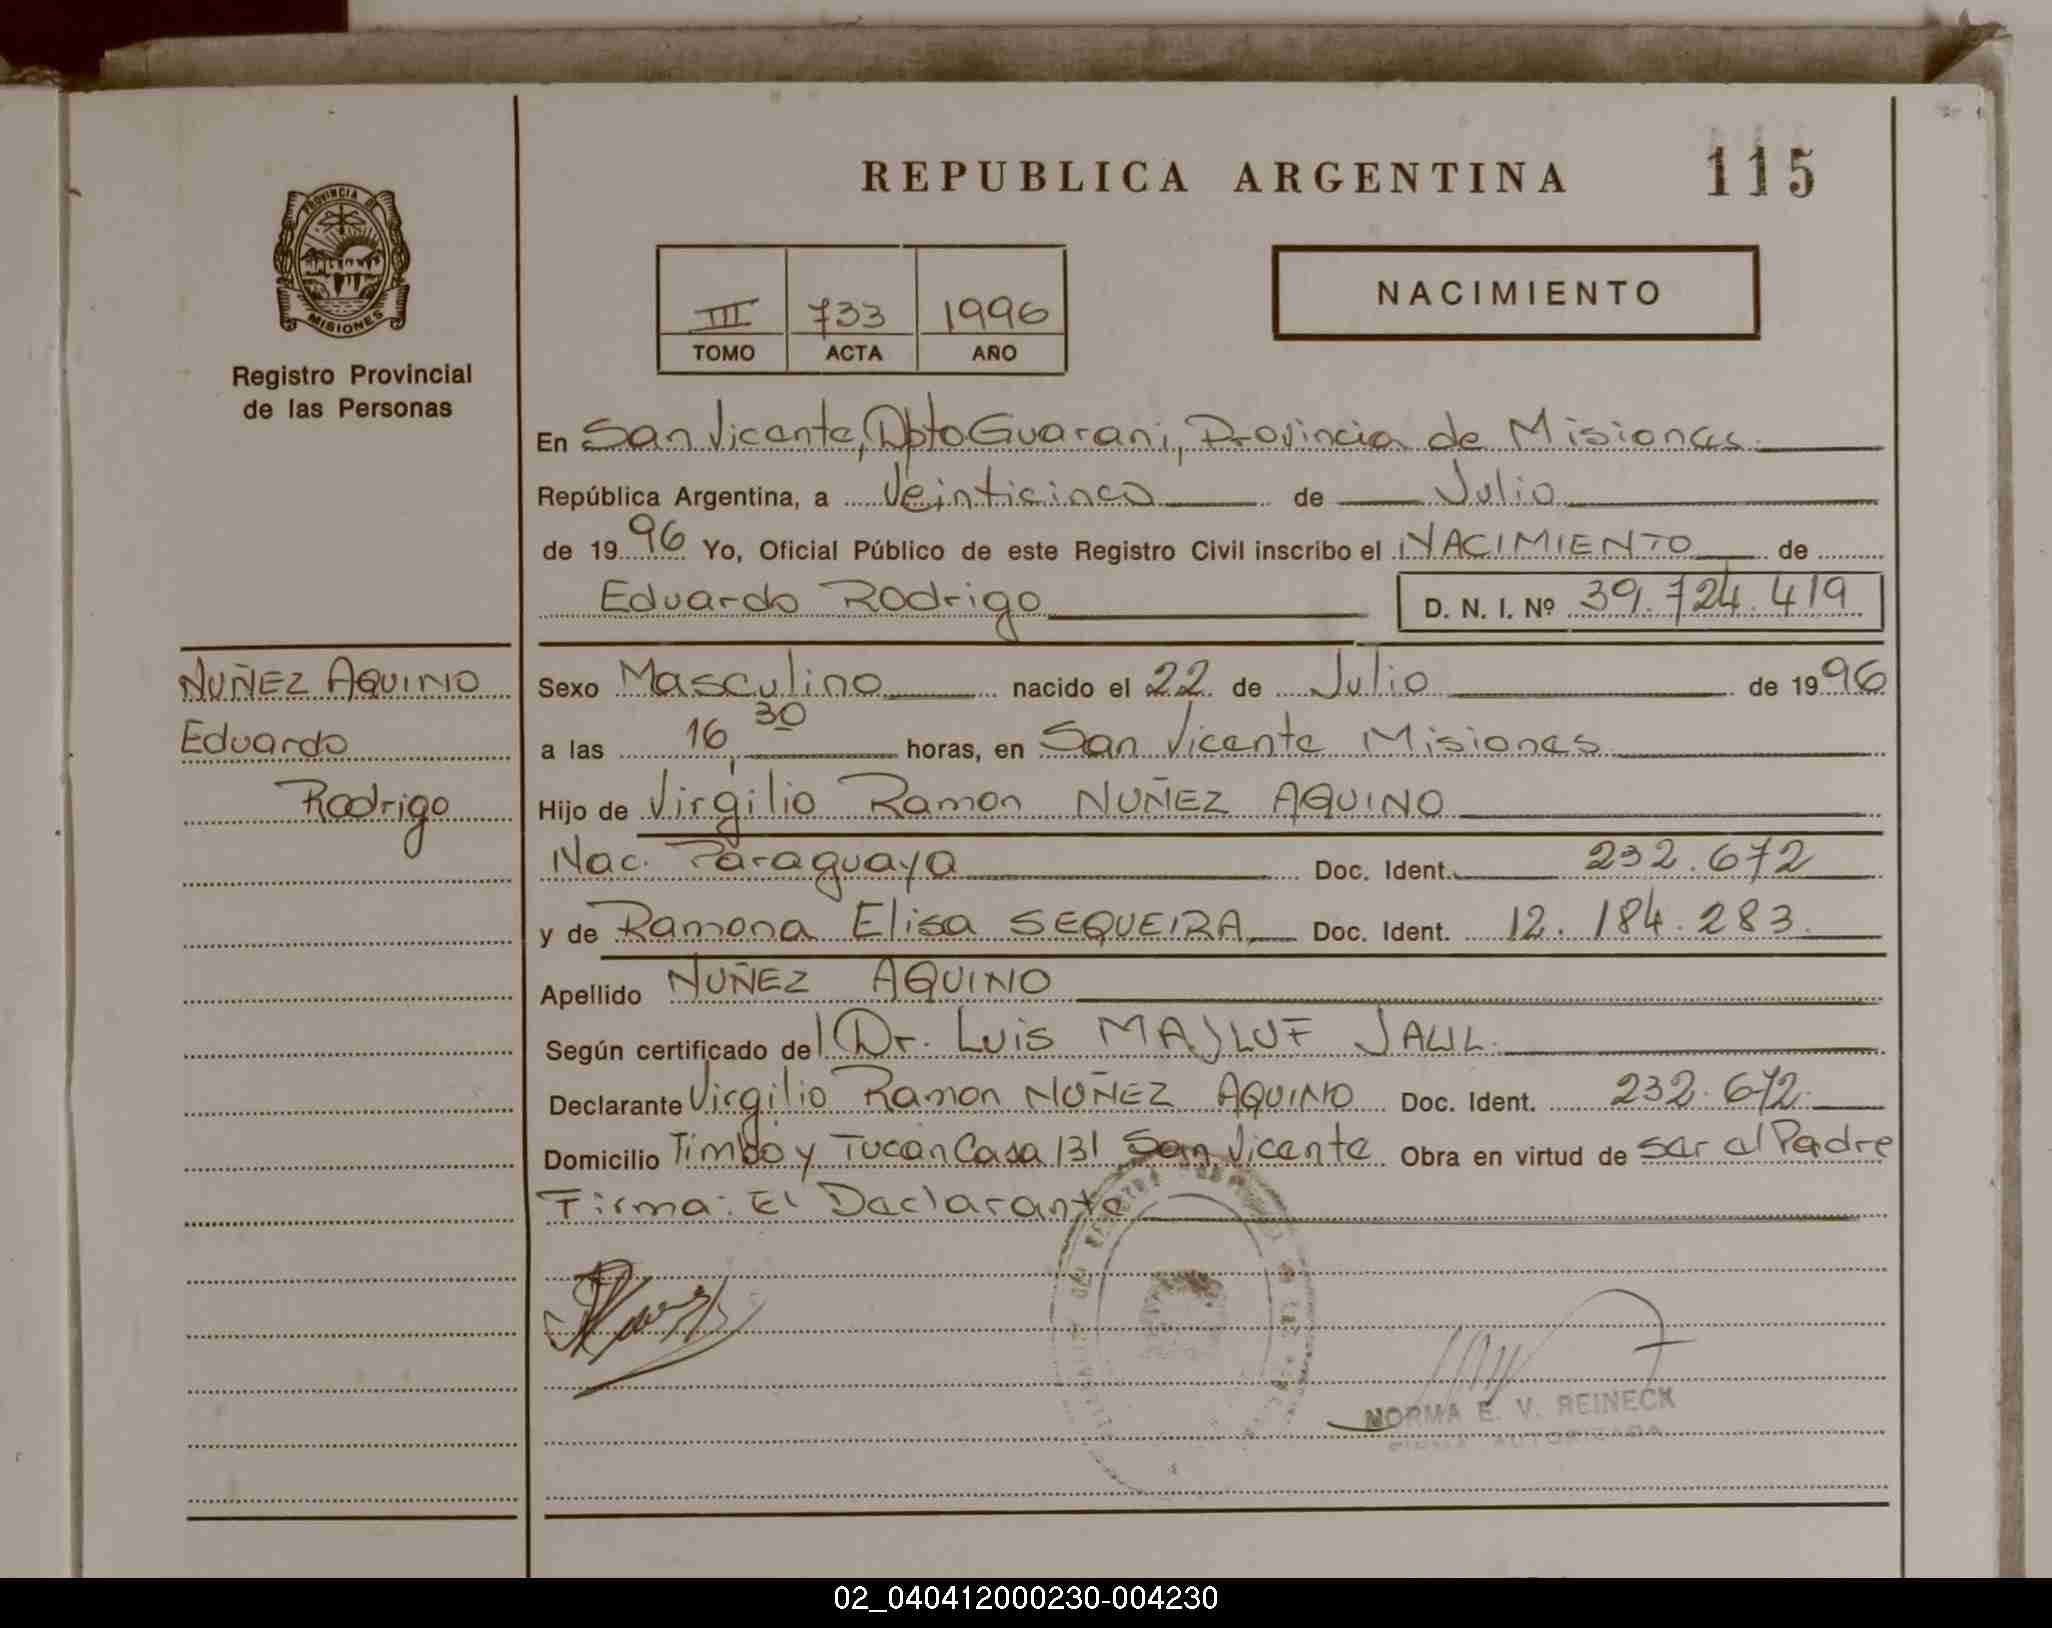 REPUBLICA ARGENTINA
115
PROVINCIA DE
MISIONES
Registro Provincial
de las Personas
III 733 1996
TOMO ACTA AÑO
NACIMIENTO
En San Vicente, Dpto Guarani, Provincia de Misiones.
República Argentina, a Veinticinco de Julio
de 1996 Yo, Oficial Público de este Registro Civil inscribo el NACIMIENTO de
Eduardo Rodrigo D. N. I. Nº 39.724.419
NUÑEZ AQUINO
Eduardo
Rodrigo
Sexo Masculino nacido el 22 de Julio de 1996
a las 16,30 horas, en San Vicente Misiones
Hijo de Virgilio Ramon NUÑEZ AQUINO
Nac. Paraguaya Doc. Ident. 232.672
y de Ramona Elisa SEQUEIRA Doc. Ident. 12.184.283.
Apellido NUÑEZ AQUINO
Según certificado del Dr. Luis MAJLUF JALIL.
Declarante Virgilio Ramon NUÑEZ AQUINO Doc. Ident. 232.672.
Domicilio Timbó y Tucan Casa 131 San Vicente Obra en virtud de ser el Padre
Firma: El Declarante
NORMA E. V. REINECK
FIRMA AUTORIZADA
02_040412000230-004230